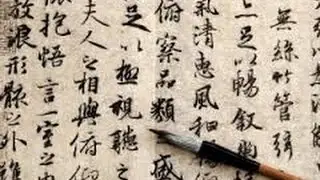 無絲竹管弦
足以暢叙幽
氣清惠風和暢
俯察品類盛
足以極視聽之
夫人之相與俯仰
抱悟言一室之內
放浪形骸之外雖